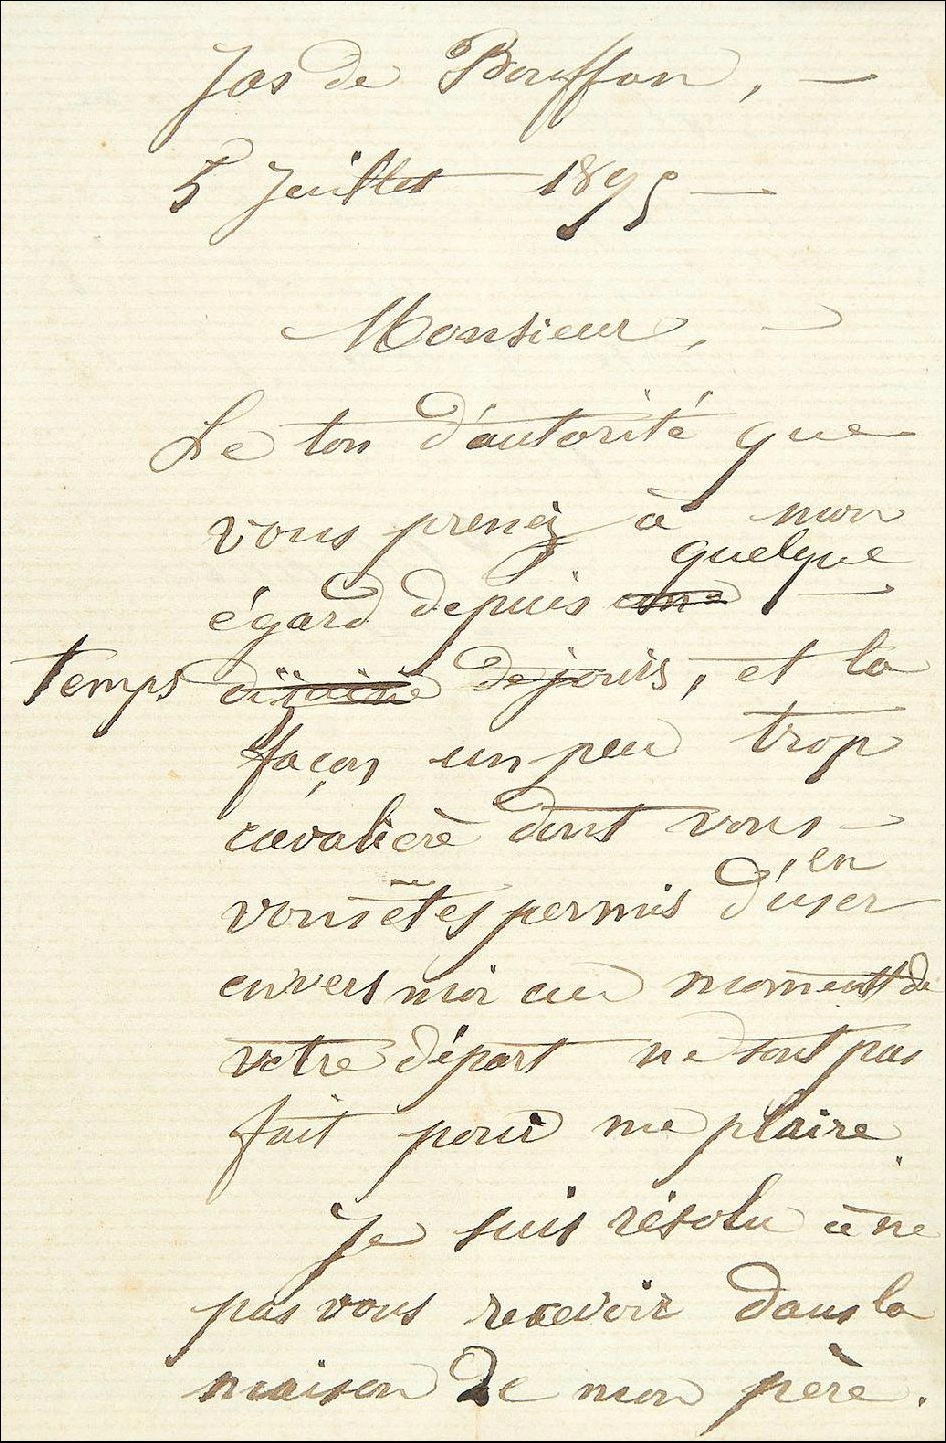 Jas de Bouffan, —
5 Juillet 1895 —
Monsieur,
Le ton d'autorité que
vous prenez à mon
quelque
égard depuis une
temps dizaine de jours, et la
façon un peu trop
cavalière dont vous
en
vous êtes permis d'user
envers moi au moment de
votre départ ne sont pas
fait pour me plaire.
Je suis résolu à ne
pas vous recevoir dans la
maison de mon père.